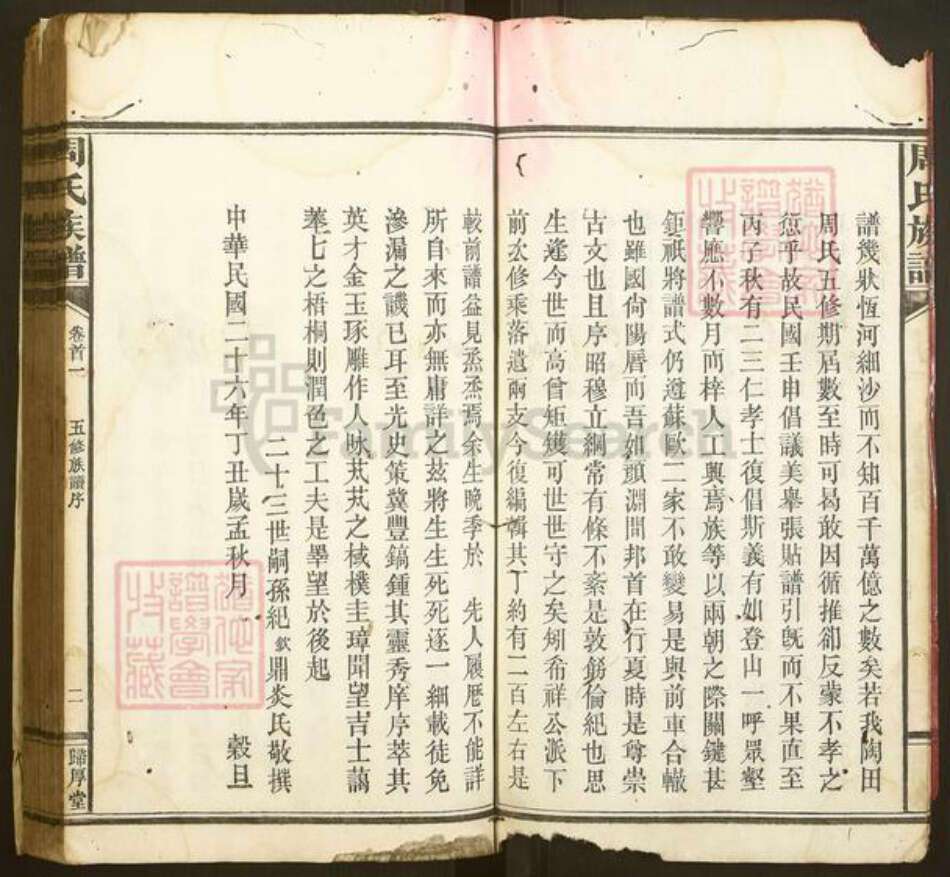 周氏族譜
譜幾狀恆河細沙而不知百千萬億之數矣若我陶田
周氏五修期屆數至時可曷敢因循推卻反蒙不孝之
愆乎故民國壬申倡議美舉張貼譜引旣而不果直至
丙子秋有二三仁孝士復倡斯義有如登山一呼眾壑
響應不數月而梓人工興焉族等以兩朝之際關鍵甚
鉅祇將譜式仍遵蘇歐二家不敢變易是與前車合轍
也雖國尙陽曆而吾如頭淵問邦首在行夏時是尊崇
古文也且序昭穆立綱常有條不紊是敦篤倫紀也思
生逢今世而高曾矩矱可世世守之矣矧希祥公派下
前次修乘落遺兩支今復編輯其丁約有二百左右是
較前譜益見烝烝焉余生晚季於 先人履歷不能詳
所自來而亦無庸詳之茲將生生死死逐一細載徒免
滲漏之譏已耳至光史策冀豐鎬鍾其靈秀庠序萃其
英才金玉琢雕作人咏芃芃之棫樸圭璋聞望吉士藹
萋七之梧桐則潤色之工夫是畢望於後起
二十三世嗣孫紀欽鼎炎氏敬撰
中華民國二十六年丁丑歲孟秋月 穀旦
周氏族譜
卷首一
五修族譜序
二
歸厚堂
FamilySearch